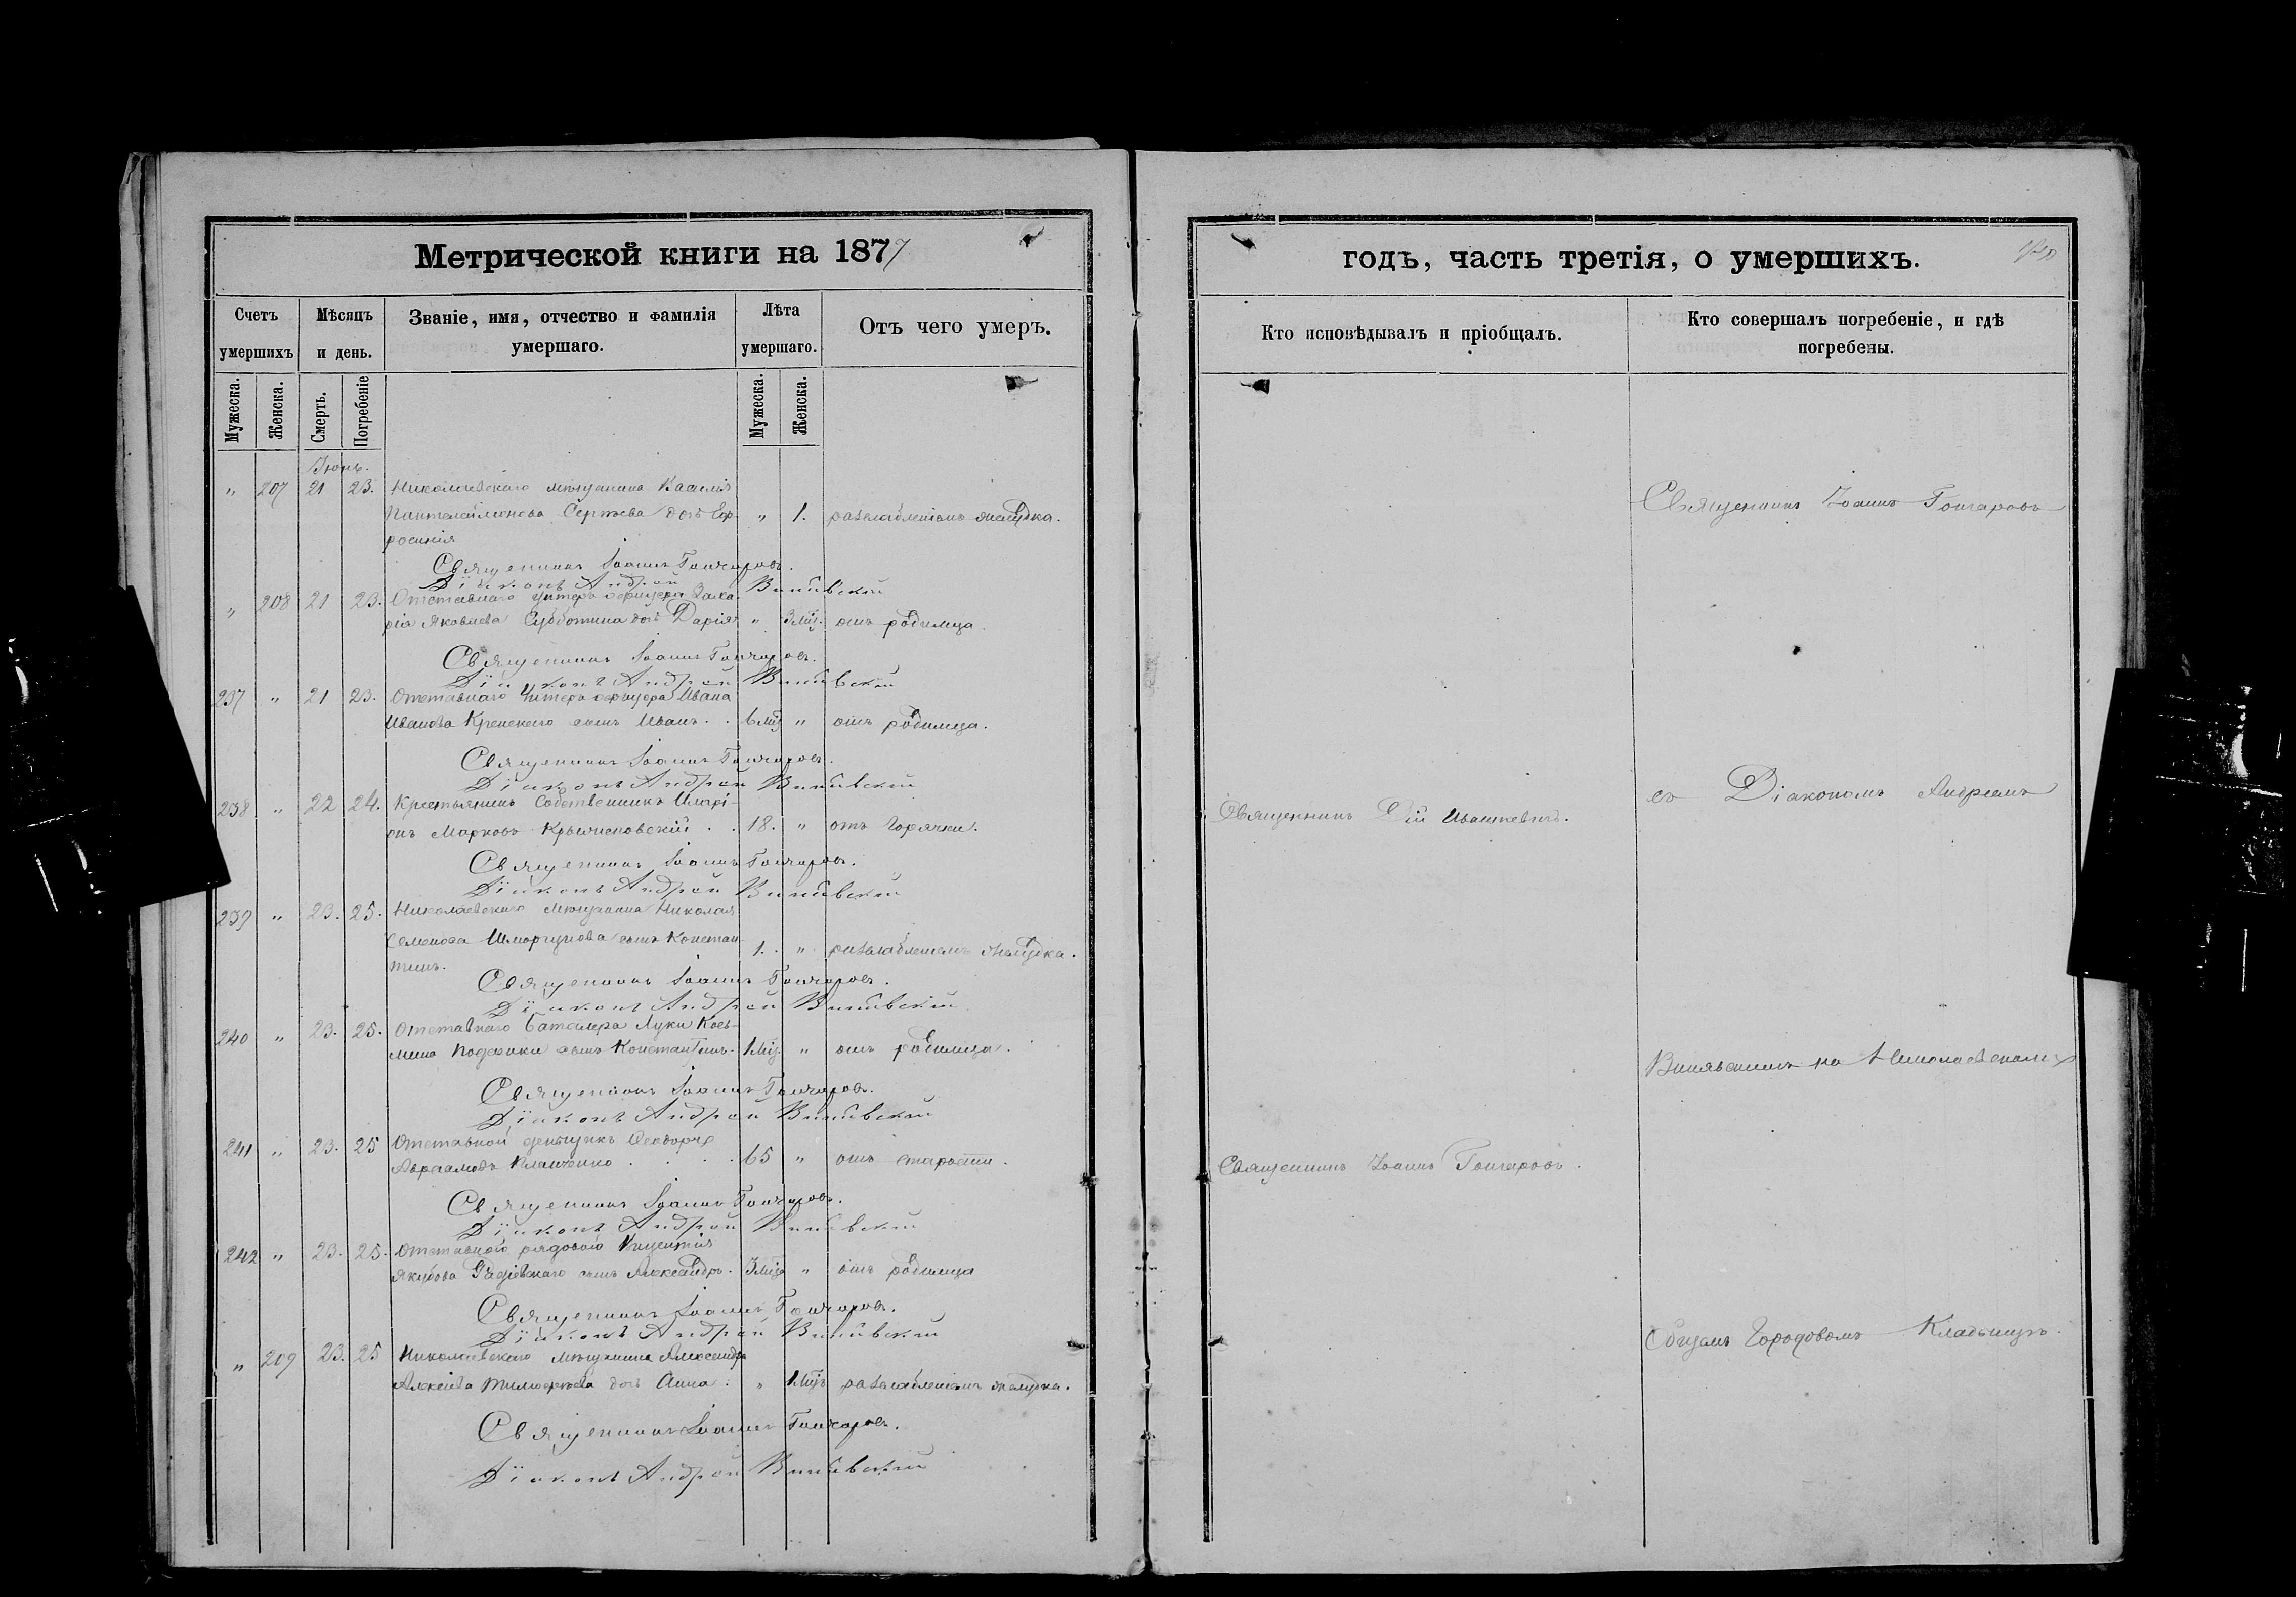 Метрической книги на 1877
Счетъ умершихъ
Мѣсяцъ и день.
Званіе, имя, отчество и фамилія умершаго.
Лѣта умершаго.
Отъ чего умеръ.
Мужеска. Женска. Смерть. Погребеніе Мужеска. Женска.
Іюнь.
" 207 21 23. Николаевскаго мѣщанина Василія
Пантелеймонова Сергѣева дочь Евф- " 1. разслабленіемъ желудка.
росинія
Священникъ Іоаннъ Гончаровъ.
Діаконъ Андрей
" 208 21 23. Отставнаго унтеръ офицера Заха-
рія Яковлева Субботина дочь Дарія " 3 мѣц. отъ родимца.
Священникъ Іоаннъ Гончаровъ.
Діаконъ Андрей
237 " 21 23. Отставнаго Унтеръ офицера Ивана
Иванова сынъ Иванъ. . 6 мѣц " отъ родимца.
Священникъ Іоаннъ Гончаровъ.
Діаконъ Андрей
238 " 22 24. Крестьянинъ Собственникъ Иларі-
онъ Марковъ . . 18. " отъ Горячки.
Священникъ Іоаннъ Гончаровъ.
Діаконъ Андрей
239 " 23. 25. Николаевскаго мѣщанина Николая
Семенова сынъ Констан- 1. " разслабленіемъ желудка.
тинъ.
Священникъ Іоаннъ Гончаровъ.
Діаконъ Андрей
240 " 23. 25. Отставнаго баталера Луки Козь-
мина сынъ Константинъ. 1 мѣц. " отъ родимца.
Священникъ Іоаннъ Гончаровъ.
Діаконъ Андрей
241 " 23. 25 Отставной деньщикъ Ѳеодоръ
Авраамовъ . . . . 65 " отъ старости.
Священникъ Іоаннъ Гончаровъ.
Діаконъ Андрей
242 " 23. 25. Отставного рядоваго
Якубова сынъ Александръ. 3 мѣц " отъ родимца
Священникъ Іоаннъ Гончаровъ.
Діаконъ Андрей
" 209 23. 25 Николаевскаго мѣщанина Александра
Алексѣева дочь Анна . " 1 мѣц разслабленіемъ желудка.
Священникъ Іоаннъ Гончаровъ.
Діаконъ Андрей
годъ, часть третія, о умершихъ.
Кто исповѣдывалъ и пріобщалъ.
Кто совершалъ погребеніе, и гдѣ погребены.
Священникъ Іоаннъ Гончаровъ
съ Діакономъ Андреемъ
Священникъ Ивашкевичъ.
на Николаевскомъ
Священникъ Іоаннъ Гончаровъ.
Общемъ Городовомъ Кладбищѣ.